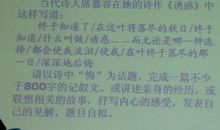 当代诗人席慕容在她的诗作《诱惑》中
这样写道:
终于知道了/在这叶将落尽的秋日/终于
知道/什么叫做/诱惑……而无论是哪一种选
择/都会使我流泪/使我/在叶终于落尽的那
一日/深深地后悔
请以诗中“悔”为话题,完成一篇不少
于800字的记叙文。或讲述亲身的经历,或
联想相关的故事,抒写内心的感受,发表自
己的见解,题目自拟。